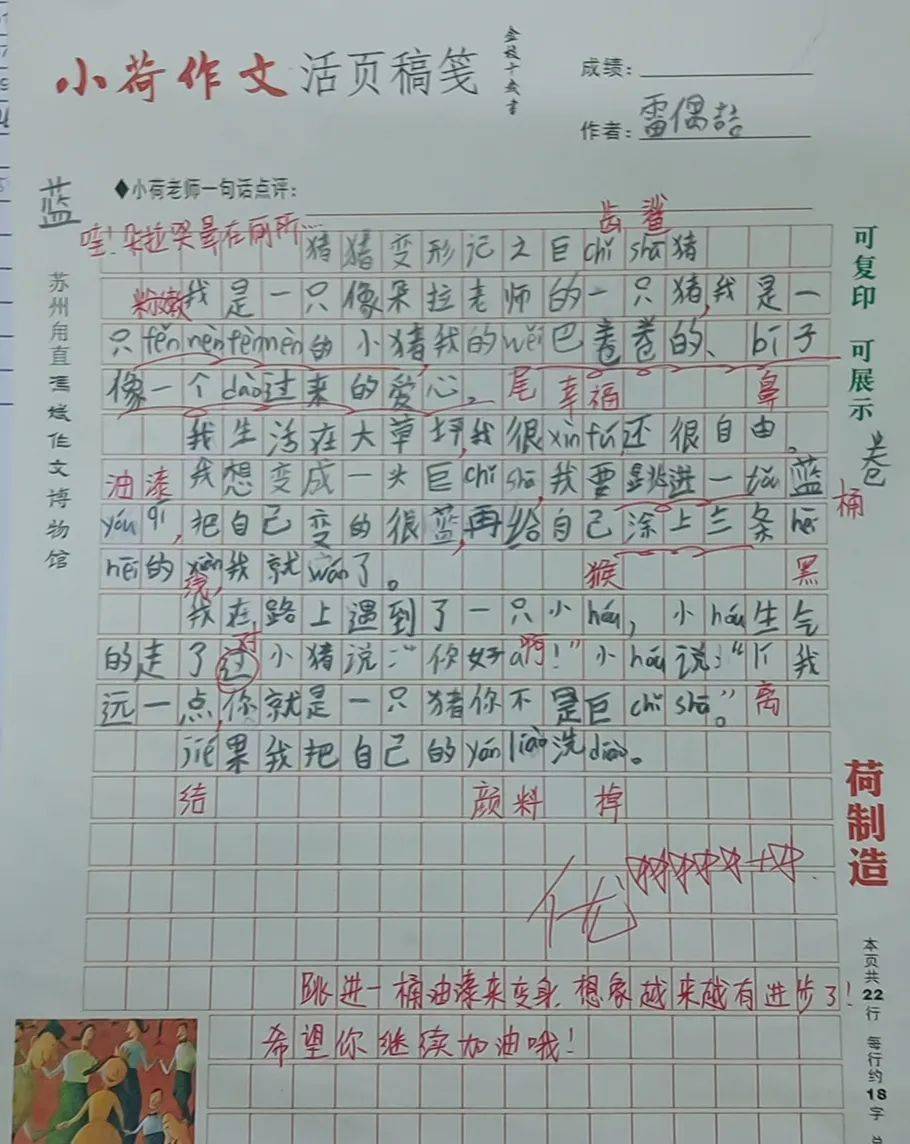 金波十岁书
小荷作文 活页稿笺
成绩：
作者：雷偶喆
◆小荷老师一句话点评：
蓝
哇！朵拉哭晕在厕所…
齿 鲨
猪猪变形记之巨chǐ shā猪
粉嫩
我是一只像朵拉老师的一只猪，我是一
只fěn nèn fèn nèn的小猪，我的wěi巴卷卷的、bí子
像一个dào过来的爱心。 尾 幸福 鼻
我生活在大草坪，我很xìn fú，还很自由。
油漆
我想变成一头巨chǐ shā，我要跳进一tǒu蓝
桶
卷
yóu qī，把自己变的很蓝，再给自己涂上三条hēi
hēi的xiàn，我就wán了。 猴 黑
线
我在路上遇到了一只小hóu，小hóu生气
对
的走了过小猪说：“你好a！”小hóu说：“lí我
啊
远一点，你就是一只猪你不是巨chǐ shā。” 离
jié果我把自己的yán liào洗diào。
结 颜料 掉
优
跳进一桶油漆来变身，想象越来越有进步了！
希望你继续加油哦！
苏州甪直冯斌作文博物馆
可复印 可展示
荷制造
本页共22行 每行约18字